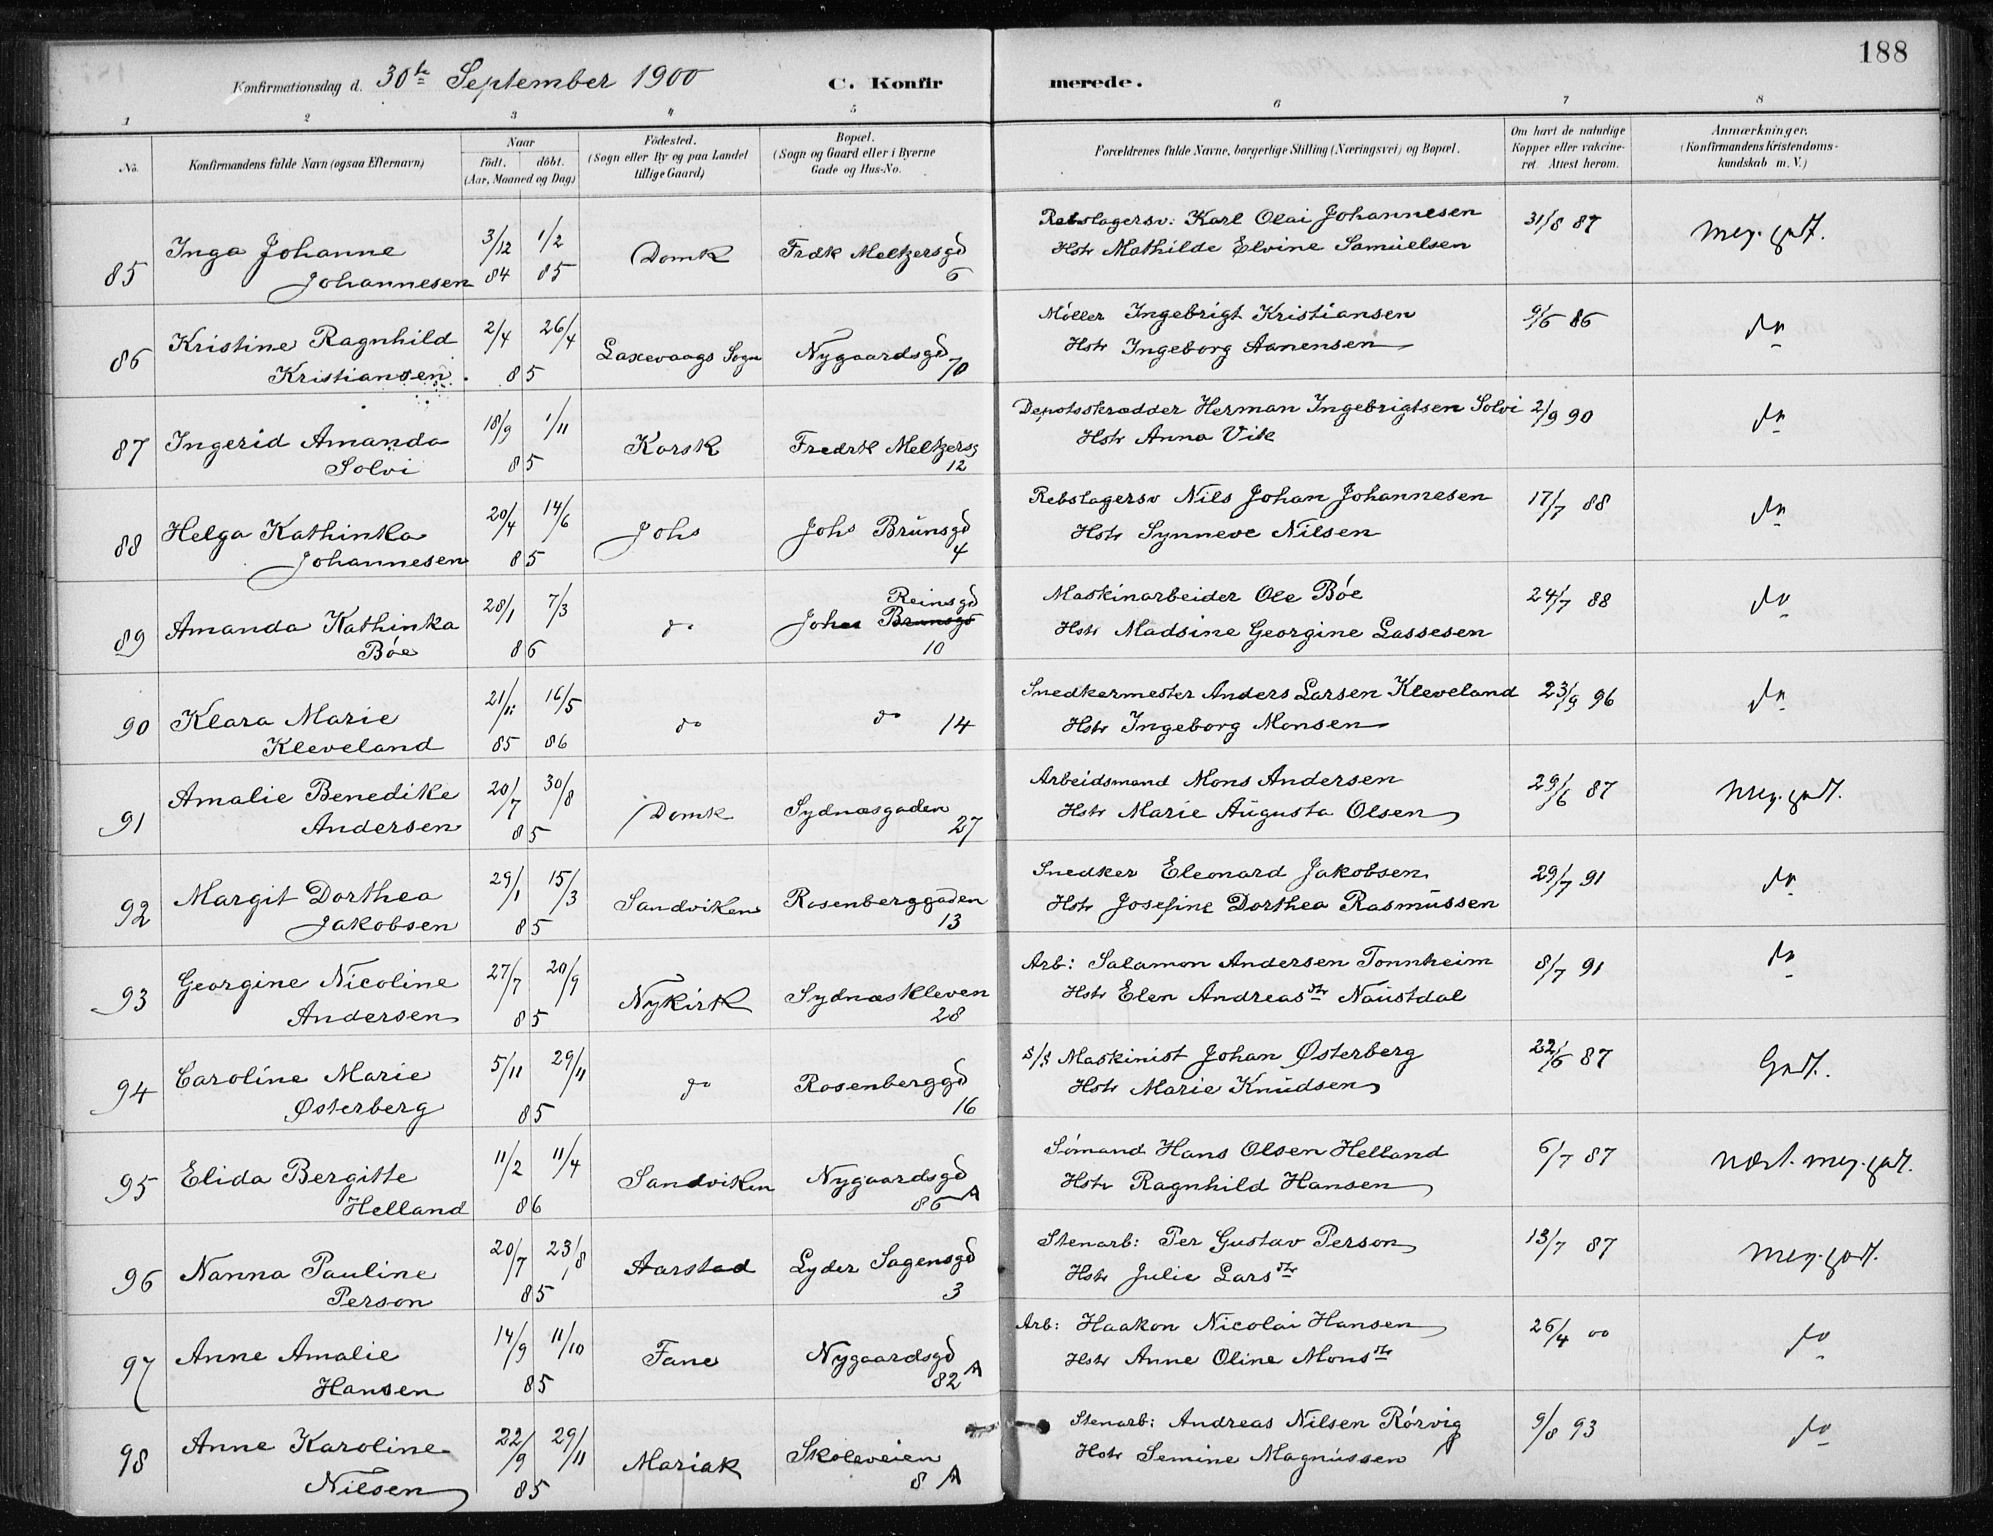 188
Konfirmationsdag d. 30te September 1900 C. Konfirmerede.
1 2 3 4 5 6 7 8
No. Konfirmandens fulde Navn (ogsaa Efternavn) Naar født. døbt. (Aar, Maaned og Dag) Fødested. (Sogn eller By og paa Landet tillige Gaard) Bopæl. (Sogn og Gaard eller i Byerne Gade og Hus-No. Forældrenes fulde Navne, borgerlige Stilling (Næringsvei) og Bopæl. Om havt de naturlige Kopper eller vaccineret. Attest herom. Anmærkninger. (Konfirmandens Kristendomskundskab m. V.)
85 Inga Johanne 3/12 1/2 Domk Fredk Meltzersgd Rebslagersv: Karl Olai Johannesen 31/8 87 Meg. godt.
Johannesen 84 85 6 Hstr Mathilde Elvine Samuelsen
86 Kristine Ragnhild 2/4 26/4 Laxevaags Sogn Nygaardsgd Møller Ingebrigt Kristiansen 9/6 86 do
Kristiansen. 85 70 Hstr Ingeborg Aanensen
87 Ingerid Amanda 18/9 1/11 Korsk Fredrk Meltzersg Depotsskrædder Herman Ingebrigtsen Solvi 2/9 90 do
Solvi 85 12 Hstr Anna Vik
88 Helga Kathinka 20/4 14/6 Johs Johs Brunsgd Rebslagersv Nils Johan Johannesen 17/7 88 do
Johannesen 85 4 Hstr Synneve Nilsen
89 Amanda Kathinka 28/1 7/3 do Johs Brunsgd Reinsgd Maskinarbeider Ole Bøe 24/7 88 do
Bøe 86 10 Hstr Madsine Georgine Lassesen
90 Klara Marie 21/11 16/5 do do 14 Snedkermester Anders Larsen Kleveland 23/9 96 do
Kleveland 85 86 Hstr Ingeborg Monsen
91 Amalie Benedike 20/7 30/8 Domk Sydnæsgaden Arbeidsmand Mons Andersen 29/6 87 Meg. godt.
Andersen 85 27 Hstr Marie Augusta Olsen
92 Margit Dorthea 29/1 15/3 Sandviken Rosenberggaden Snedker Eleonard Jakobsen 29/7 91 do
Jakobsen 85 13 Hstr Josefine Dorthea Rasmussen
93 Georgine Nicoline 27/7 20/9 Nykirk Sydnæskleven Arb: Salamon Andersen Tonnheim 8/7 91 do
Andersen 85 28 Hstr Elen Andreasdtr Naustdal
94 Caroline Marie 5/11 29/11 do Rosenberggd S/S Maskinist Johan Østerberg 22/6 87 Godt.
Østerberg 85 16 Hstr Marie Knudsen
95 Elida Bergitte 11/2 11/4 Sandviken Nygaardsgd Sømand Hans Olsen Helland 6/7 87 Næst. meg. godt.
Helland 86 86 A Hstr Ragnhild Hansen
96 Nanna Pauline 20/7 23/8 Aarstad Lyder Sagensgd Stenarb: Per Gustav Person 13/7 87 Meg. godt.
Person 85 3 Hstr Julie Larsdtr
97 Anne Amalie 14/9 11/10 Fane Nygaardsgd Arb: Haakon Nicolai Hansen 26/4 00 do
Hansen 85 82 A Hstr Anne Oline Monsdtr
98 Anne Karoline 22/9 29/11 Mariak Skoleveien Stenarb: Andreas Nilsen Rørvig 9/8 93 do
Nilsen 85 8 A Hstr Semine Magnussen